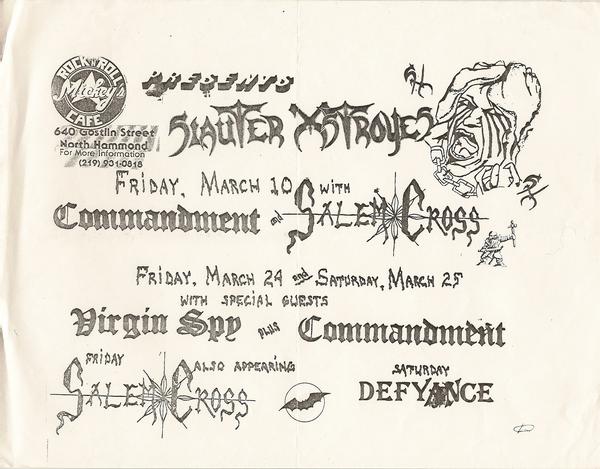 ROCK N' ROLL
Mickey's
CAFE
PRESENTS
640 Gostlin Street
North Hammond
For More Information
(219) 931-0818
SLAUTER XSTROYES
FRIDAY, MARCH 10 WITH
Commandment and SALEM CROSS
FRIDAY, MARCH 24 and SATURDAY, MARCH 25
WITH SPECIAL GUESTS
Virgin Spy PLUS Commandment
FRIDAY ALSO APPEARING SATURDAY
SALEM CROSS DEFYANCE